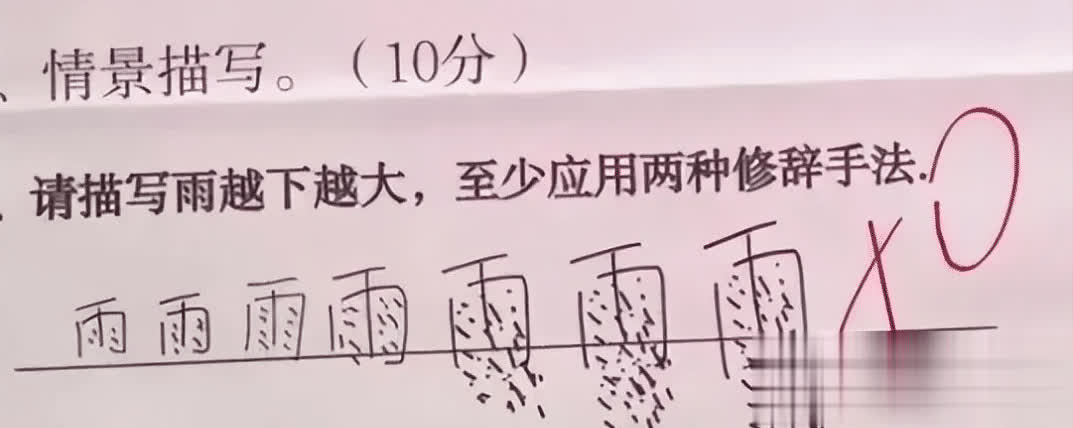 、情景描写。（10分）
请描写雨越下越大，至少应用两种修辞手法.
雨 雨 雨 雨 雨 雨 雨 × 0